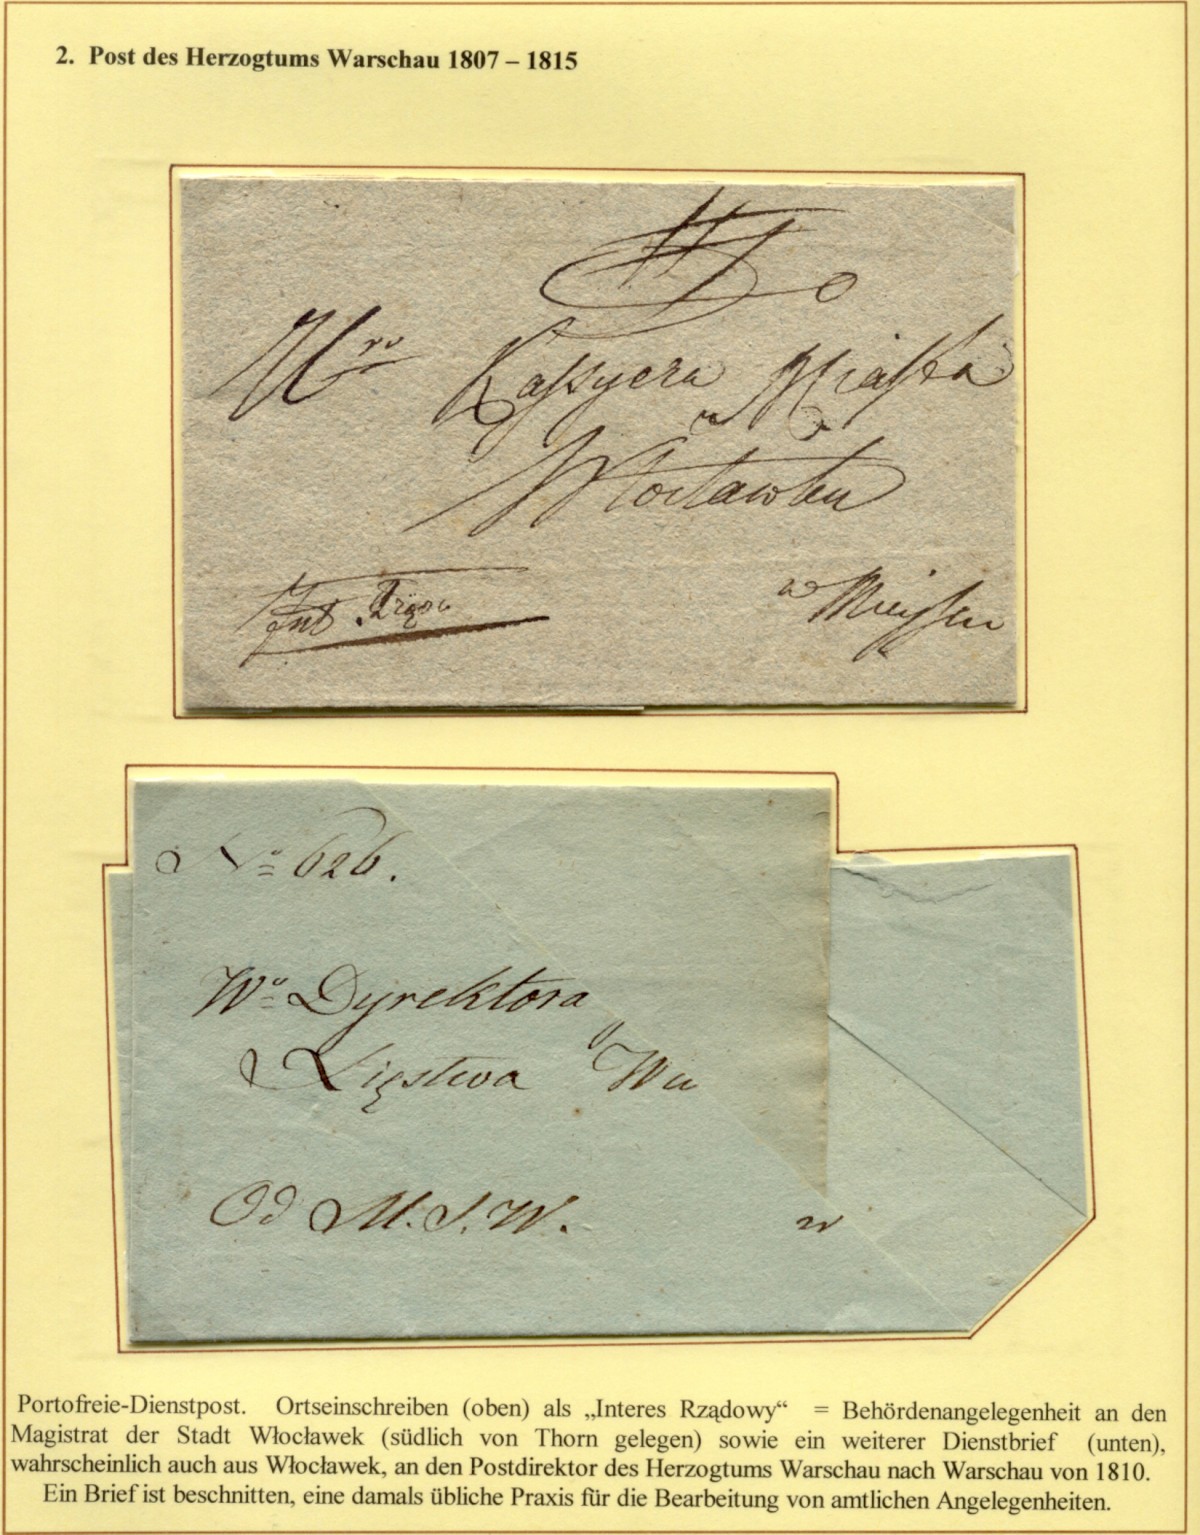 2. Post des Herzogtums Warschau 1807 – 1815
Do
Kassyera Miasta
Włocławku
Int. Rządo
w Mieyscu
No 626.
Wo Dyrektora
Xięstwa Wu
Od M. S. W.
w
Portofreie-Dienstpost. Ortseinschreiben (oben) als „Interes Rządowy“ = Behördenangelegenheit an den
Magistrat der Stadt Włocławek (südlich von Thorn gelegen) sowie ein weiterer Dienstbrief (unten),
wahrscheinlich auch aus Włocławek, an den Postdirektor des Herzogtums Warschau nach Warschau von 1810.
Ein Brief ist beschnitten, eine damals übliche Praxis für die Bearbeitung von amtlichen Angelegenheiten.